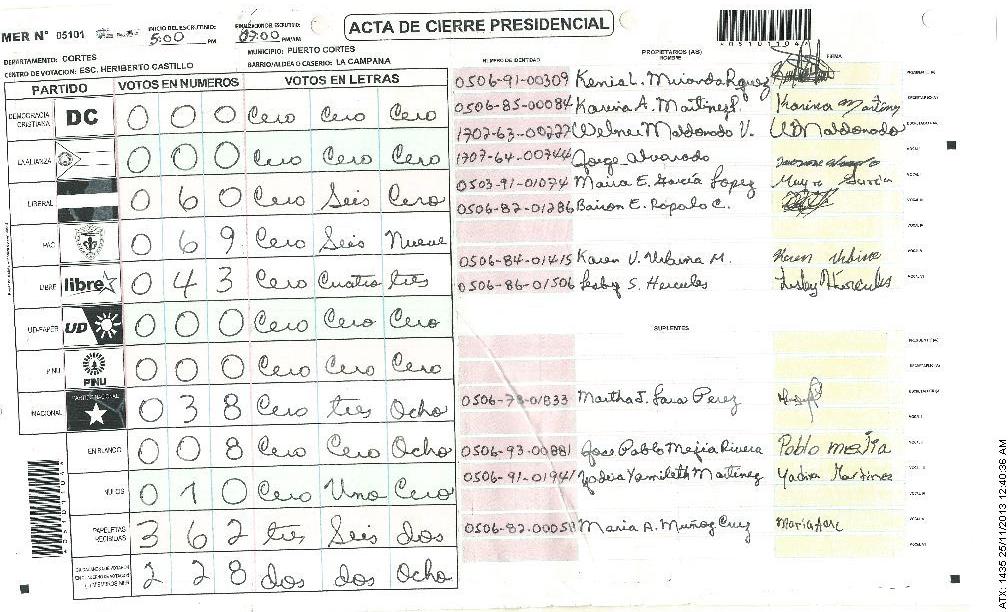 ACTA DE CIERRE PRESIDENCIAL
MER N° 05101
INICIO DEL ESCRUTINIO: 5:00 PM
FINALIZACION DEL ESCRUTINIO: 07:00 PM/AM
DEPARTAMENTO: CORTES
MUNICIPIO: PUERTO CORTES
CENTRO DE VOTACION: ESC. HERIBERTO CASTILLO
BARRIO/ALDEA O CASERIO: LA CAMPANA
PARTIDO VOTOS EN NUMEROS VOTOS EN LETRAS
DEMOCRACIA CRISTIANA DC 0 0 0 Cero Cero Cero
LA ALIANZA 0 0 0 Cero Cero Cero
LIBERAL 0 6 0 Cero Seis Cero
PAC 0 6 9 Cero Seis Nueve
LIBRE libre 0 4 3 Cero Cuatro tres
UD-FAPER UD 0 0 0 Cero Cero Cero
PINU PINU 0 0 0 Cero Cero Cero
NACIONAL PARTIDO NACIONAL 0 3 8 Cero tres Ocho
EN BLANCO 0 0 8 Cero Cero Ocho
NULOS 0 1 0 Cero Uno Cero
PAPELETAS RECIBIDAS 3 6 2 tres Seis dos
2 2 8 dos dos Ocho
NUMERO DE IDENTIDAD
PROPIETARIOS (AS)
NOMBRE
FIRMA
0506-91-00309 Kenia L. Miranda Rguez
0506-85-00084 Karina A. Martinez Karina Martinez
1702-63-00222 Welmer Maldonado V. Maldonado
1707-64-00744 Jorge Alvarado
0503-91-01074 Maria E. García Lopez Garcia
0506-82-01286 Bairon E. Rapalo C.
0506-84-01415 Karen V. Urbina M. Karen Urbina
0506-86-01506 Lesby S. Hercules Lesby Hercules
SUPLENTES
0506-79-01833 Martha J. Lara Perez
0506-93-00881 Jose Pablo Mejia Rivera Pablo mejia
0506-91-01941 Yadira Yamileth Martinez Yadira Martinez
0506-82-00058 Maria A. Muñoz Cruz
ATX: 1435 25/11/2013 12:40:36 AM